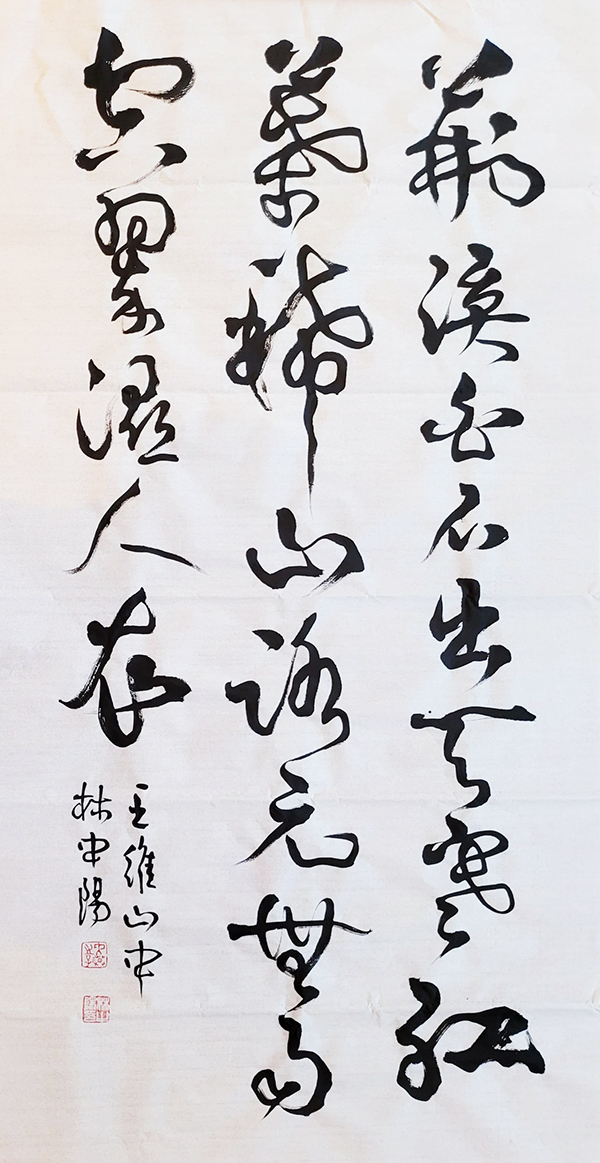 荊溪白石出天寒紅
葉稀山路元無雨
空翠濕人衣
王維山中
林中陽